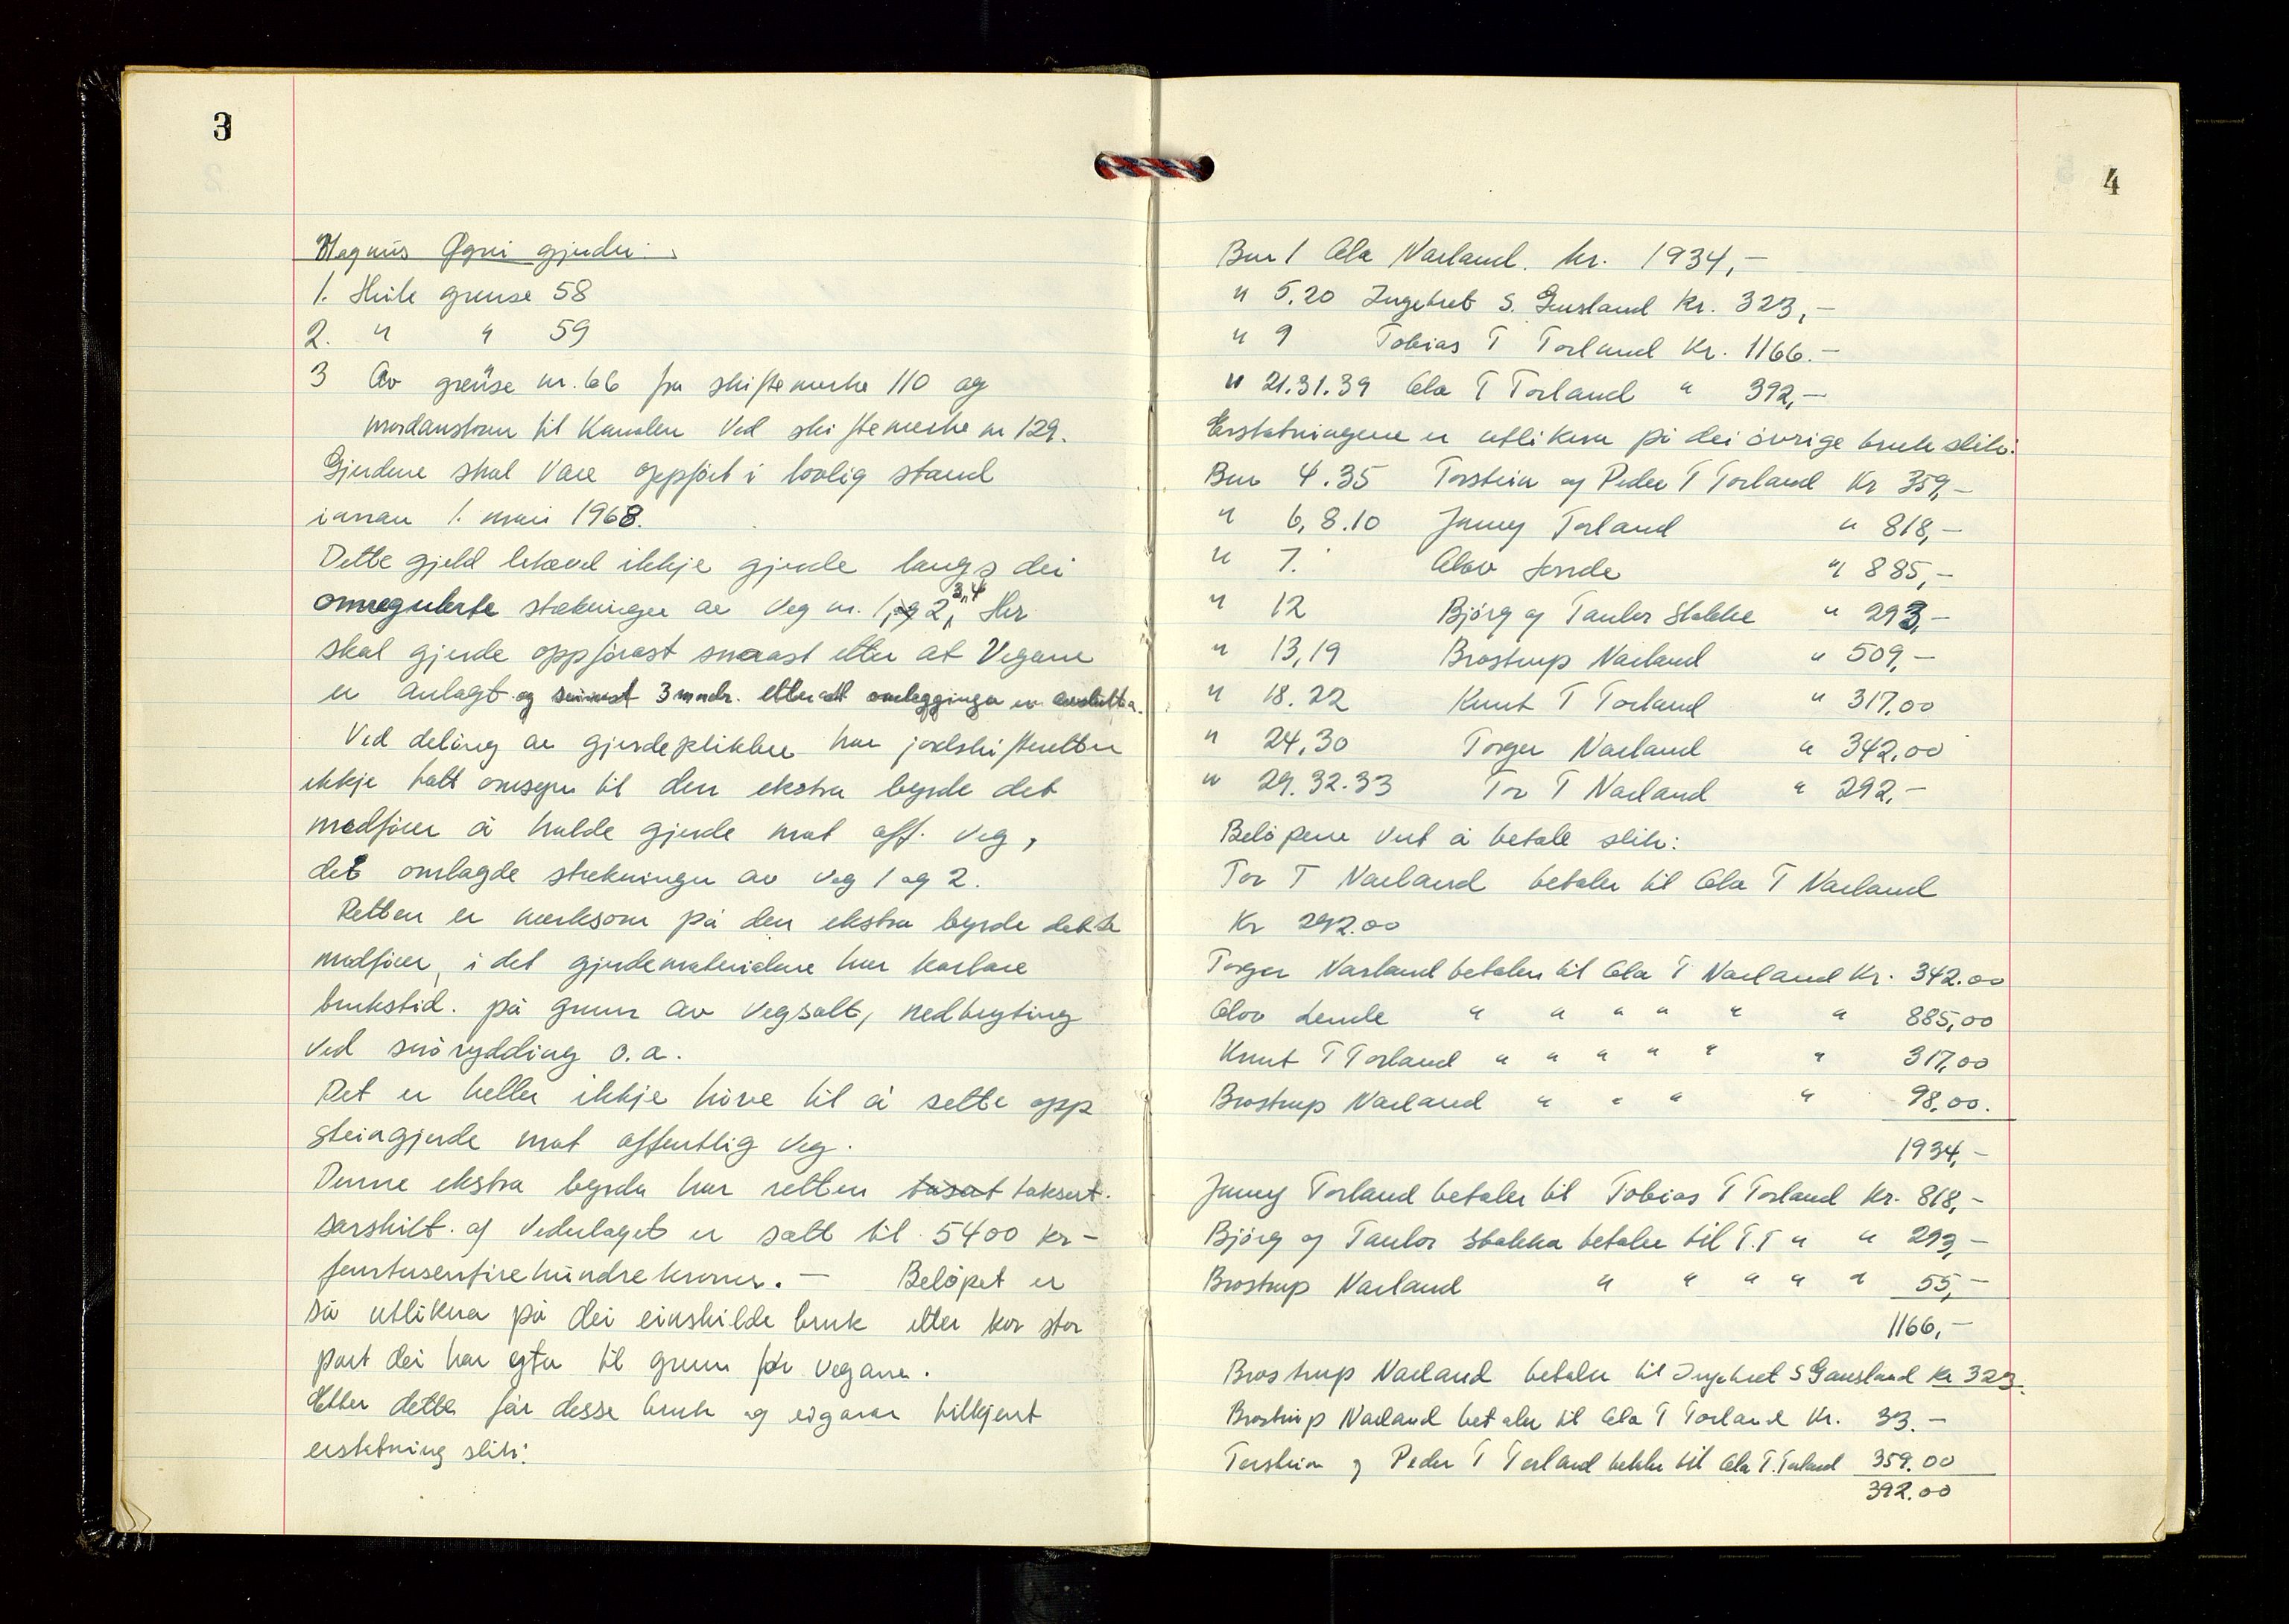 3
Magnus Ogni gjerder:
1. Heile grense 58
2. " " 59
3 Av grense nr. 66 fra skiftemerke 110 og
nordanstover til Kanalen ved skiftemerke nr 129.
Gjerdene skal være oppført i lovlig stand
innan 1. mai 1968.
Dette gjeld likevel ikkje gjerde langs dei
omregulerte strekninger av veg nr. 1, og 2, 3, 4 Her
skal gjerde oppførast snarast etter at vegane
er anlagt og seinast 3 mndr. etter at omlegginga er avslutta.
Ved deling av gjerdeplikter har jordskifteretten
ikkje tatt omsyn til den ekstra byrde det
medfører å halde gjerde mot off. veg,
det omlagde strekninger av veg 1 og 2.
Retten er merksom på den ekstra byrde dette
medfører, i det gjerdematerialene har kortare
brukstid. på grunn av vegsalt, nedbryting
ved snørydding o.a.
Det er heller ikkje høve til å sette opp
steingjerde mot offentlig veg.
Denne ekstra byrda har retten taksert
særskilt. og vederlaget er satt til 5400 kr-
femtusenfirehundrekroner. — Beløpet er
så utlikna på dei einskilde bruk etter kor stor
part dei har ytu til grunn før vegane.
Etter dette får desse bruk og eigarar tilkjent
erstatning slik:
4
Bnr 1 Ola Narland. kr. 1934,-
" 5.20 Ingebret S. Gausland kr. 323,-
" 9 Tobias T Torland kr. 1166.-
" 21.31.39 Ola T Torland " 392,-
Erstatningene er utlikna på dei øvrige bruk slik:
Bnr 4.35 Torstein og Peder T Torland kr 359,-
" 6, 8.10 Jenny Torland " 818,-
" 7. Olav Lende " 885,-
" 12 Bjørg og Taulor Stokka " 293,-
" 13,19 Brostrup Narland " 509,-
" 18.22 Knut T Torland " 317.00
" 24,30 Torger Narland " 342.00
" 29.32.33 Tor T Narland " 292,-
Beløpene vert å betale slik:
Tor T Narland betaler til Ola T Narland
Kr 292.00
Torger Narland betaler til Ola T Narland Kr. 342.00
Olav Lende " " " " " " 885,00
Knut T Torland " " " " " " 317,00
Brostrup Narland " " " " 98,00.
1934,-
Jenny Torland betaler til Tobias T Torland kr. 818,-
Bjørg og Taulor Stokka betaler til T.T " " 293,-
Brostrup Narland " " " " " 55,-
1166,-
Brostrup Narland betaler til Ingebret S Gausland kr 323.
Brostrup Narland betaler til Ola T Torland kr. 33.-
Torstein og Peder T Torland betaler til Ola T. Torland 359.00
392.00